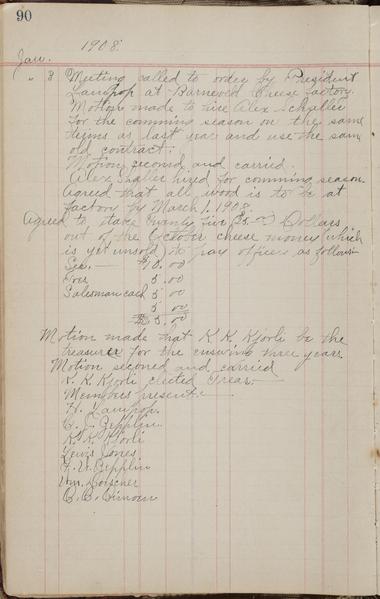 90
1908
Jan.
" 8 Meeting called to order by President
Lampop at Barneveld Cheese factory.
Motion made to hire Alex Shaller
for the comming season on the same
terms as last year and use the same
old contract.
Motion seconed and carried.
Alex Shaller hired for comming season.
Agreed that all wood is to be at
factory by March 1. 1908
Agreed to take twenty five Dollars
out of the October cheese money (which
is yet unsold) to pay officers as follows:
Sec. — $10.00
Tres 5.00
Salesman each 5.00
5.00
$25.00
Motion made that K. K. Kjorli be the
treasurer for the ensuring three years.
Motion seconed and carried
K. K. Kjorli elected Treas.
Members present:
H. Lampop.
C. J. Zepplin
K. K. Kjorli
Lewis Jones
F. W. Zepplin
Wm.